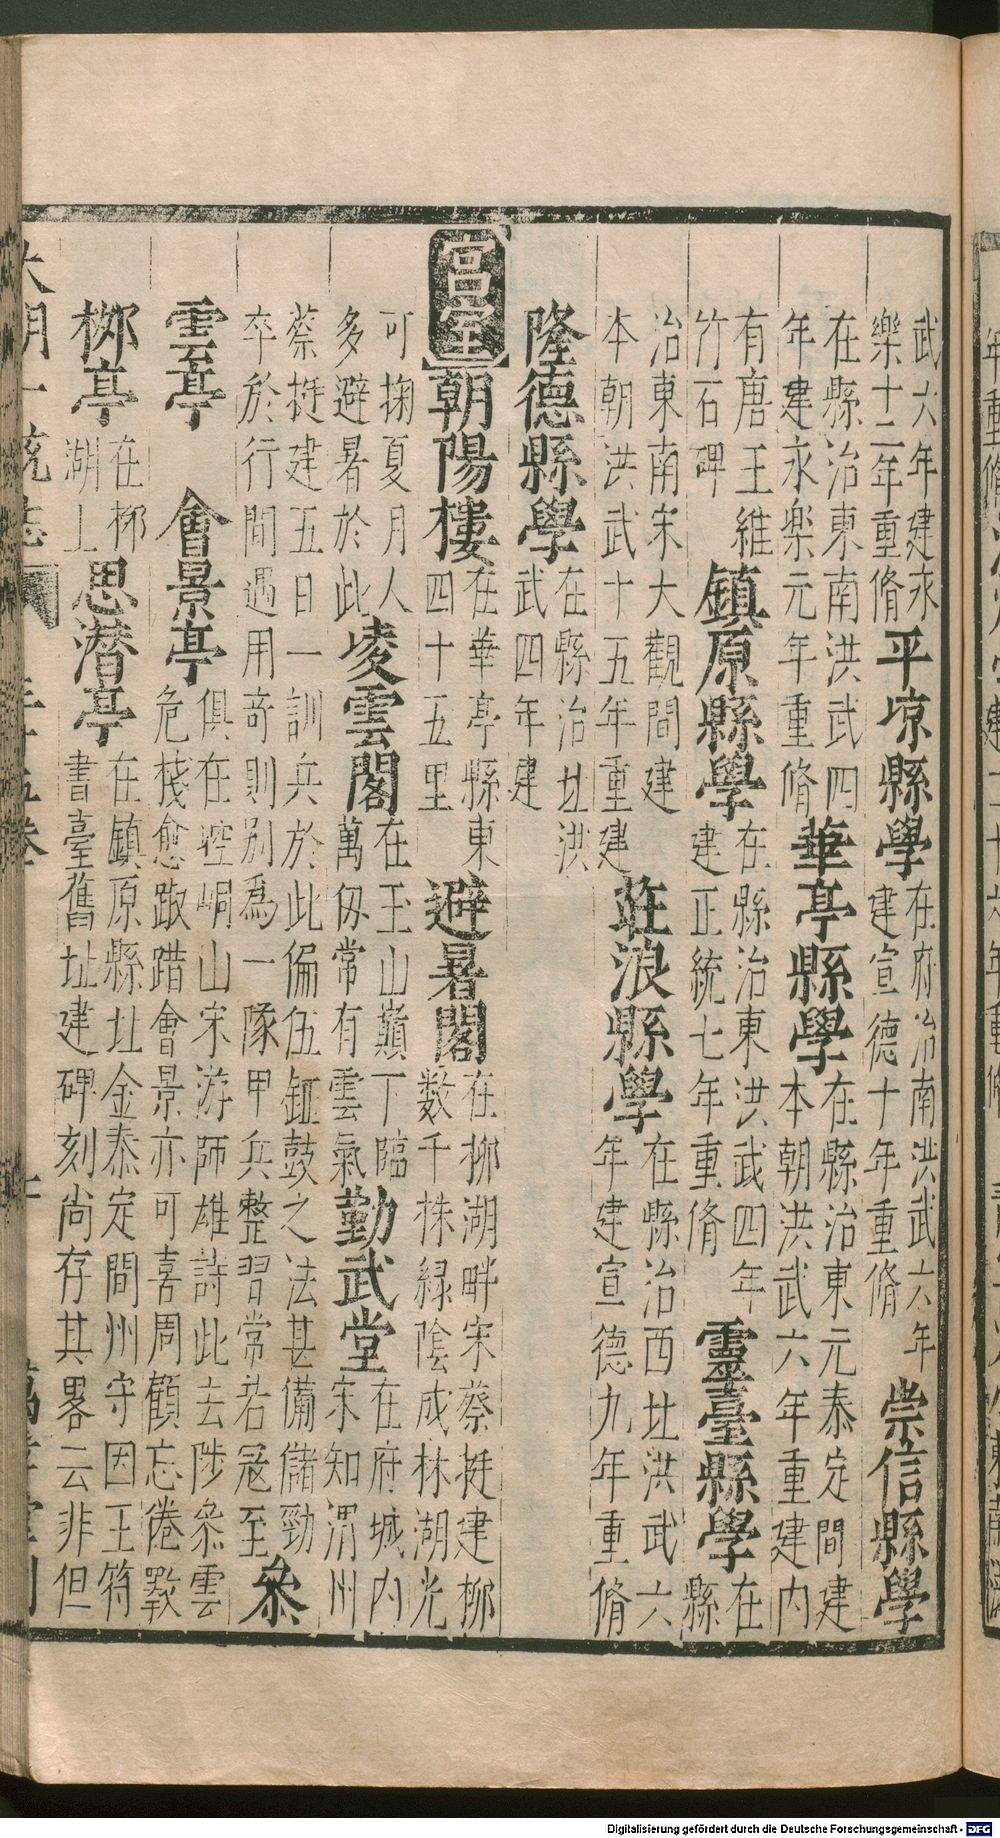 武六年建永
樂十二年重脩
平凉縣學
在府治南洪武六年
建宣德十年重脩
崇信縣學
在縣治東南洪武四
年建永樂元年重脩
華亭縣學
在縣治東元泰定間建
本朝洪武六年重建內
有唐王維
竹石碑
鎮原縣學
在縣治東洪武四年
建正統七年重脩
靈臺縣學
在
縣
治東南宋大觀間建
本朝洪武十五年重建
莊浪縣學
在縣治西北洪武六
年建宣德九年重脩
隆德縣學
在縣治北洪
武四年建
宮室
朝陽樓
在華亭縣東
四十五里
避暑閣
在柳湖畔宋蔡挺建柳
数千株緑陰成林湖光
可掬夏月人
多避暑於此
凌雲閣
在玉山巔下臨
萬仭常有雲氣
勤武堂
在府城內
宋知渭州
蔡挺建五日一訓兵於此偏伍鉦鼓之法甚備儲勁
卒於行間遇用奇則別為一隊甲兵整習常若寇至
叅
雲亭
會景亭
俱在崆峒山宋游師雄詩此去陟叅雲
危棧愈踧踖會景亦可喜周顧忘倦斁
柳亭
在柳
湖上
思潛亭
在鎮原縣北金泰定間州守因王符
書臺舊址建碑刻尚存其畧云非但
大明一統志
三十五卷